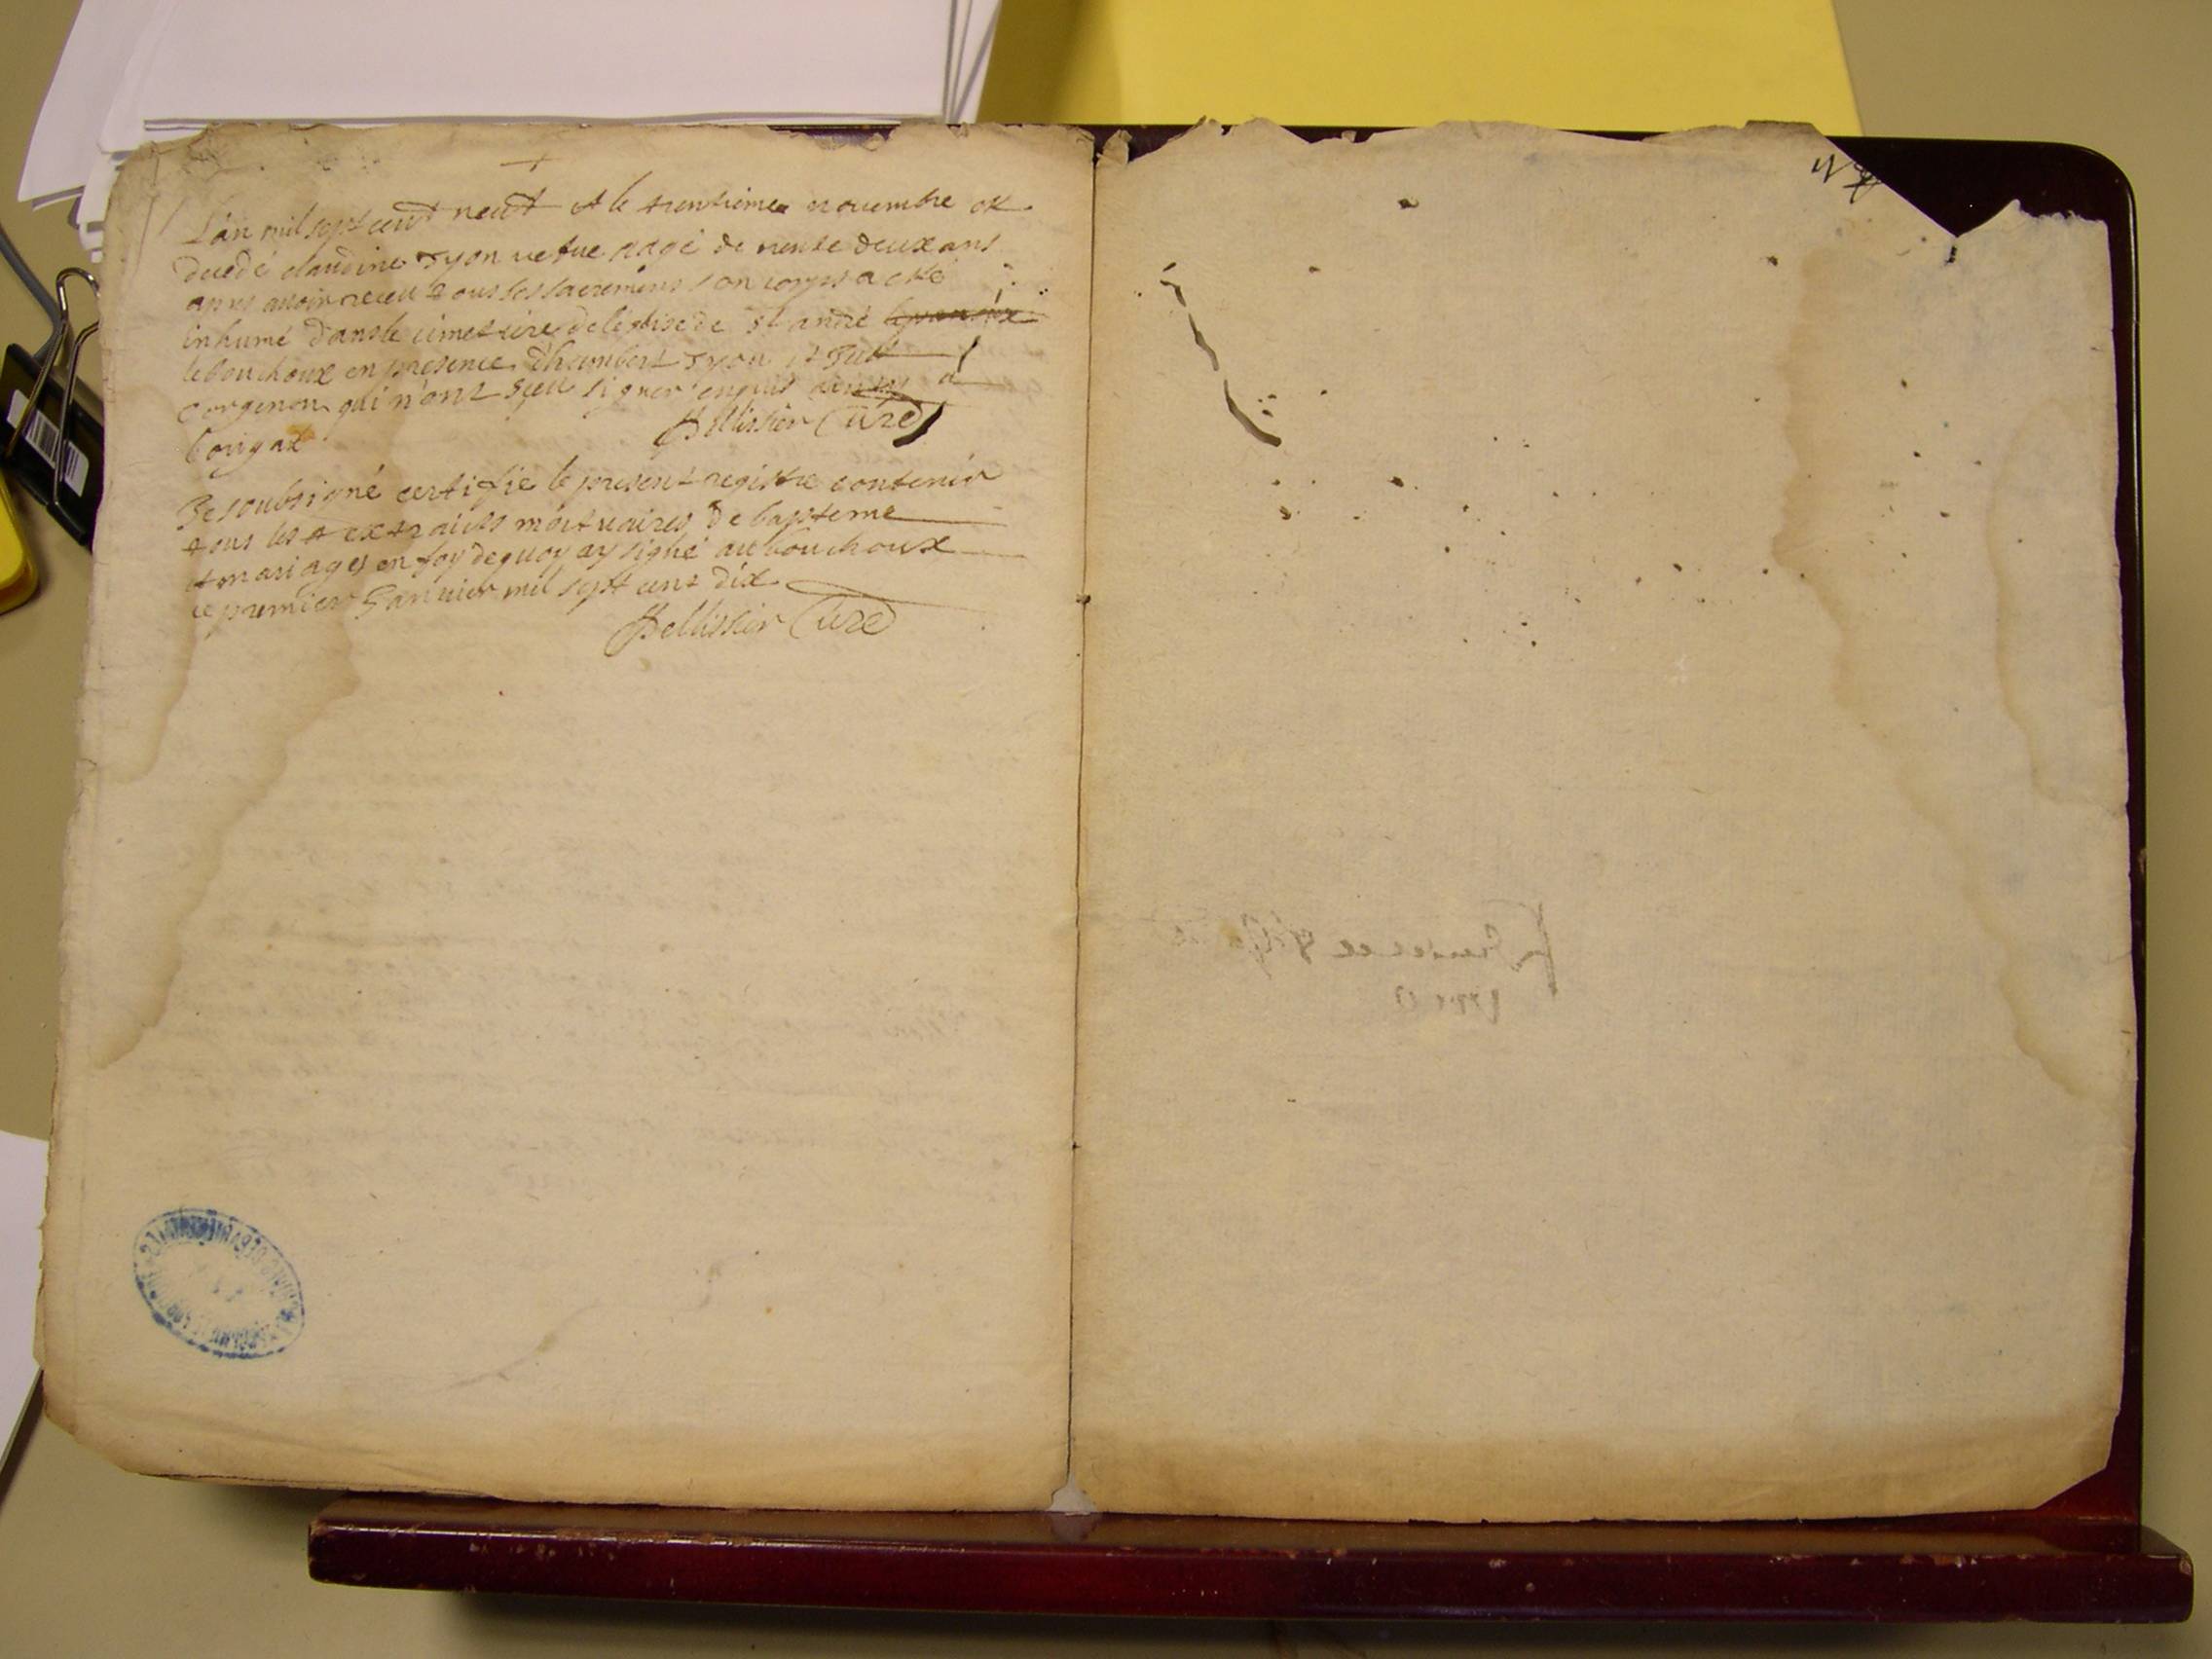 L'an mil sept cent neuf et le trentieme novembre est
decedé claudine Tyon vefue aagé de trente deux ans
apres avoir receu tous les sacremens son corps a esté
inhumé dans le cimetiere de l'eglise de st andré
le bouchoux en presence d'humbert Tyon et
corgenon qui n'ont sceu signer enquis
Pellissier Curé
Je soubsigné certifie le present registre contenir
tous les extraicts mortuaires de bapteme
et mariages en foy de quoy ay signé au bouchoux
ce premier Janvier mil sept cent dix
Pellissier Curé